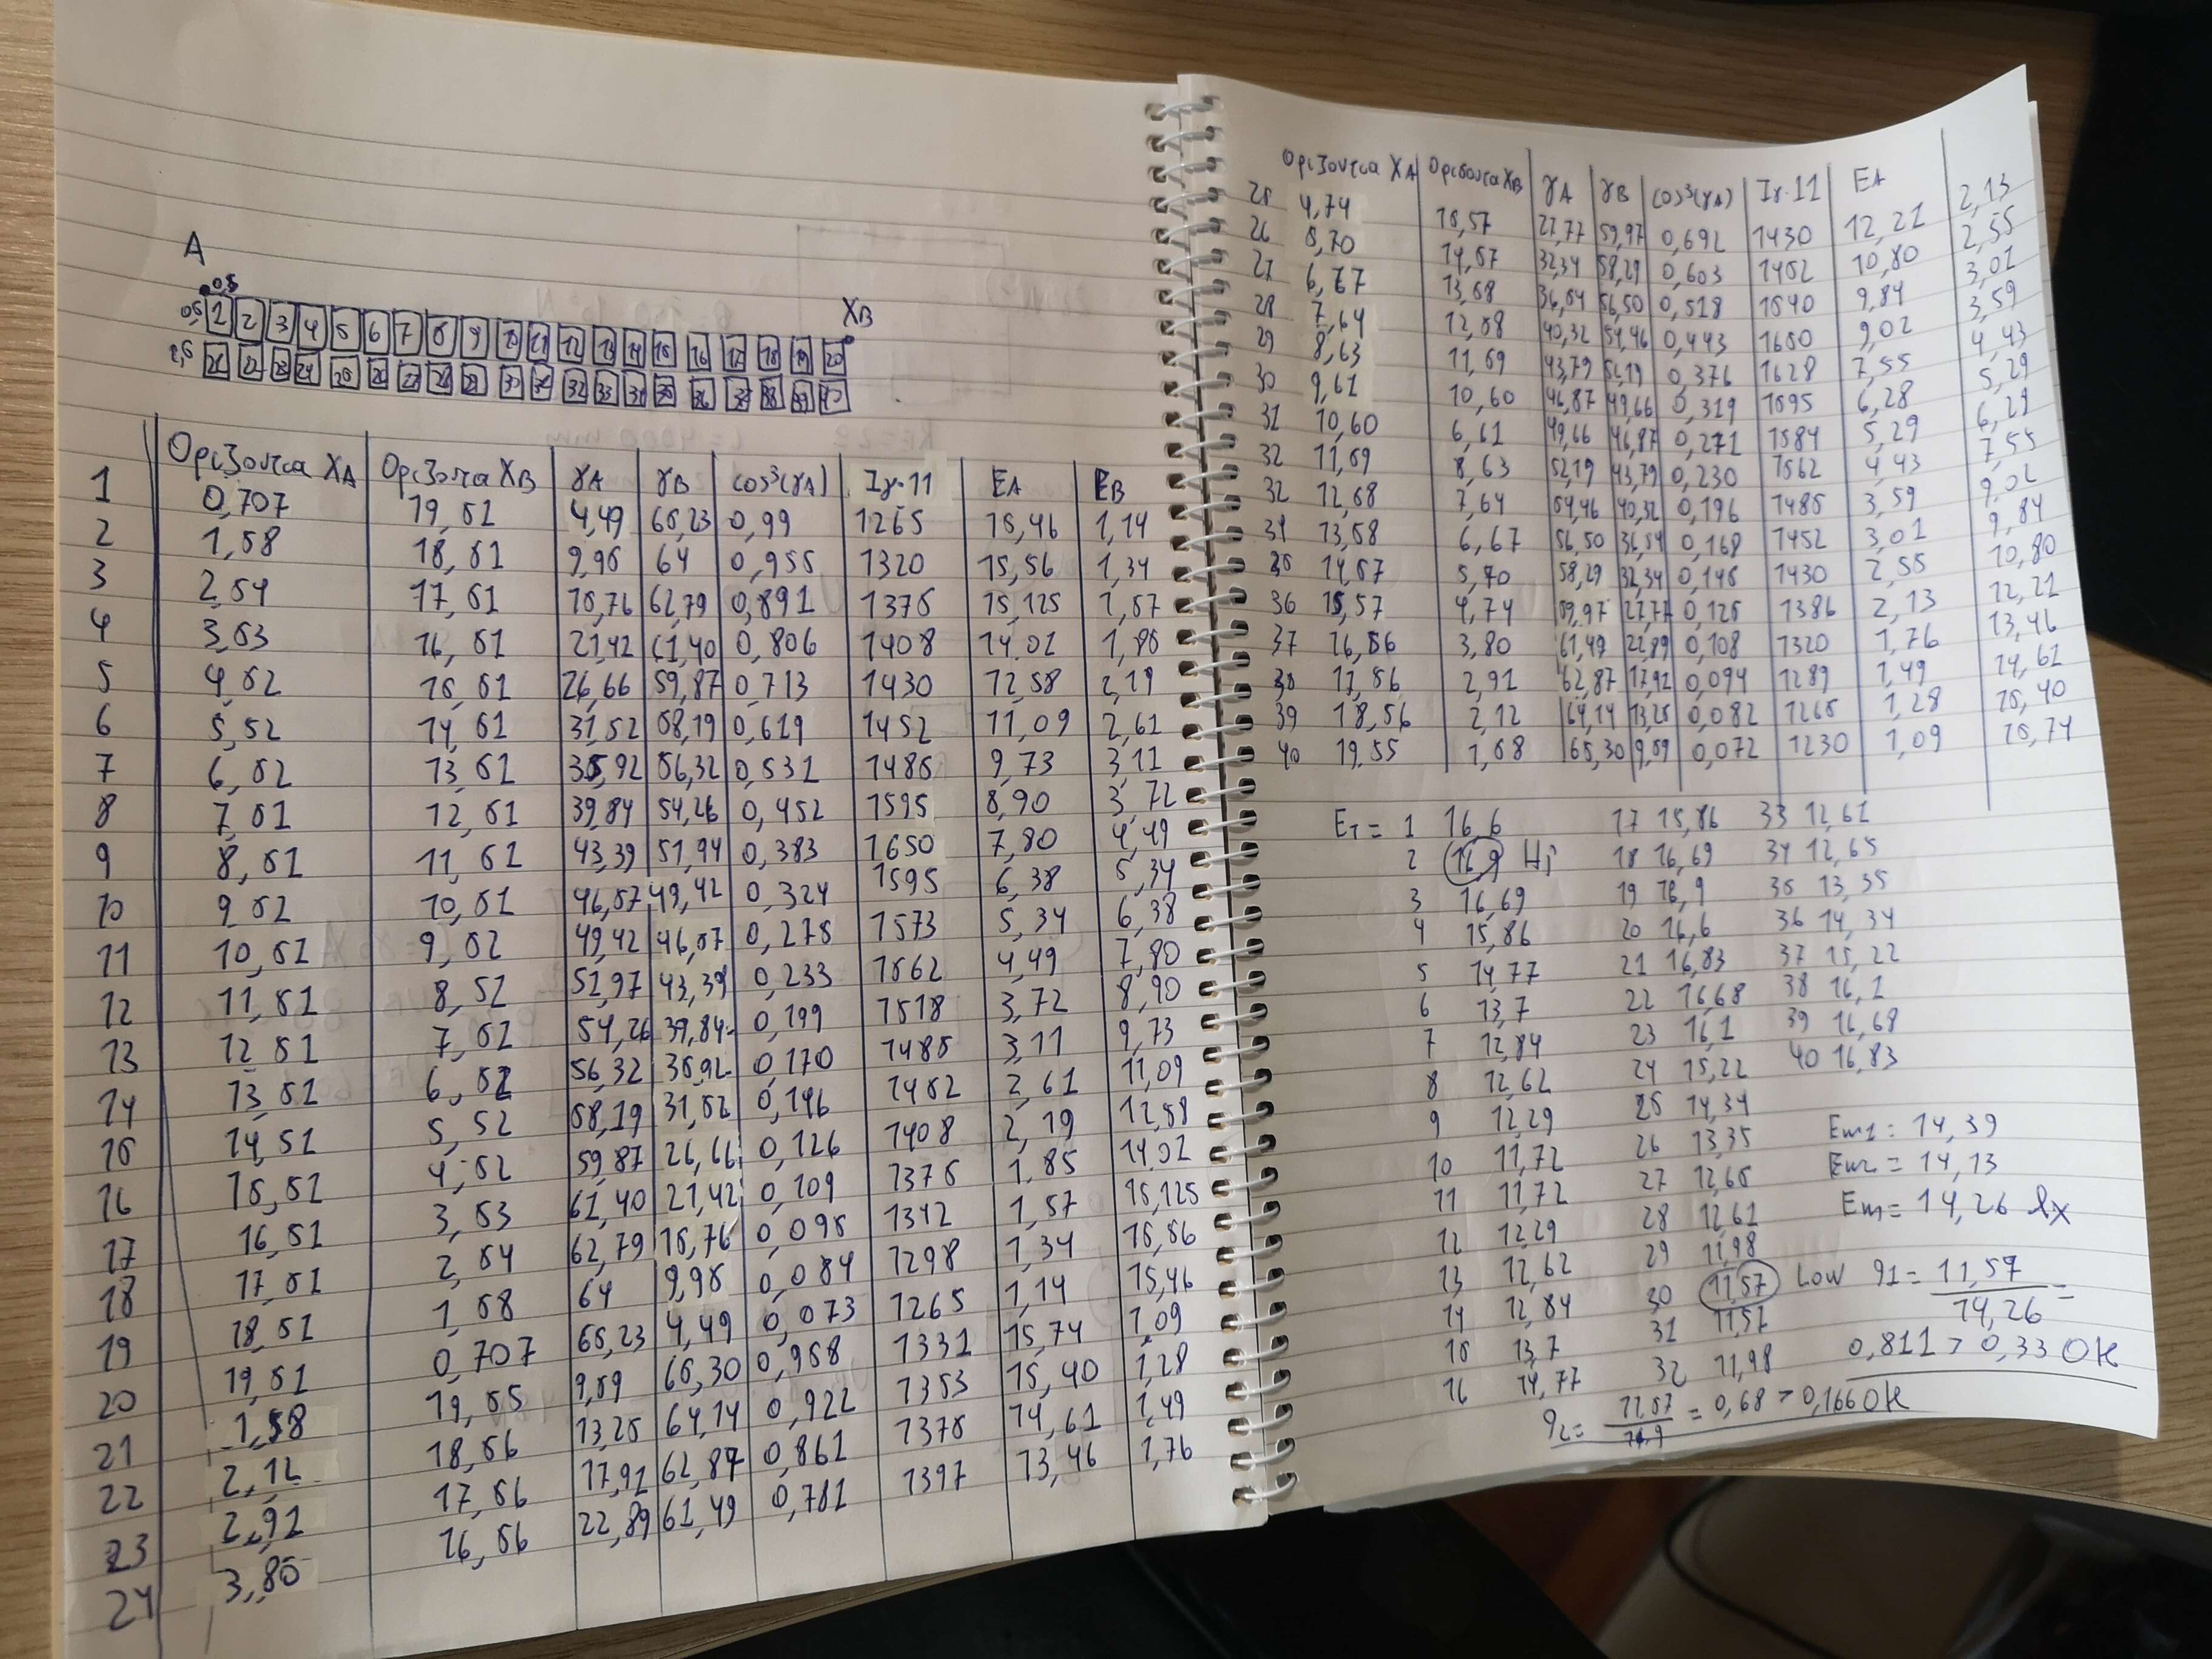 A
0,5
0,5 1 2 3 4 5 6 7 8 9 10 11 12 13 14 15 16 17 18 19 20 XB
1,5 21 22 23 24 25 26 27 28 29 30 31 32 33 34 35 36 37 38 39 40
Οριζοντια XA Οριζοντια XB γA γB cos³(γA) Iγ·11 EA EB
1 0,707 19,51 4,49 65,23 0,99 1265 15,46 1,14
2 1,58 18,51 9,95 64 0,955 1320 15,56 1,34
3 2,54 17,51 15,76 62,79 0,891 1375 15,125 1,57
4 3,53 16,51 21,42 61,40 0,806 1408 14,02 1,85
5 4,52 15,51 26,66 59,87 0,713 1430 12,58 2,19
6 5,52 14,51 31,52 58,19 0,619 1452 11,09 2,61
7 6,52 13,51 35,92 56,32 0,531 1485 9,73 3,11
8 7,51 12,51 39,84 54,26 0,452 1595 8,90 3,72
9 8,51 11,51 43,39 51,94 0,383 1650 7,80 4,49
10 9,52 10,51 46,57 49,42 0,324 1595 6,38 5,34
11 10,51 9,52 49,42 46,57 0,275 1573 5,34 6,38
12 11,51 8,51 51,97 43,39 0,233 1562 4,49 7,80
13 12,51 7,51 54,26 39,84 0,199 1518 3,72 8,90
14 13,51 6,52 56,32 35,92 0,170 1485 3,11 9,73
15 14,51 5,52 58,19 31,52 0,146 1452 2,61 11,09
16 15,51 4,52 59,87 26,66 0,126 1408 2,19 12,58
17 16,51 3,53 61,40 21,42 0,109 1375 1,85 14,02
18 17,51 2,54 62,79 15,76 0,095 1342 1,57 15,125
19 18,51 1,58 64 9,95 0,084 1298 1,34 15,56
20 19,51 0,707 65,23 4,49 0,073 1265 1,14 15,46
21 1,58 19,55 9,59 65,30 0,958 1331 15,74 1,09
22 2,12 18,56 13,25 64,14 0,922 1353 15,40 1,28
23 2,92 17,56 17,91 62,87 0,861 1375 14,61 1,49
24 3,80 16,56 22,89 61,49 0,781 1397 13,46 1,76
Οριζοντια XA Οριζοντια XB γA γB cos³(γA) Iγ·11 EA
25 4,74 15,57 27,77 59,97 0,692 1430 12,21 2,13
26 5,70 14,57 32,34 58,29 0,603 1452 10,80 2,55
27 6,67 13,58 36,54 56,50 0,518 1540 9,84 3,01
28 7,64 12,58 40,32 54,46 0,443 1650 9,02 3,59
29 8,63 11,59 43,79 52,19 0,376 1628 7,55 4,43
30 9,61 10,60 46,87 49,66 0,319 1595 6,28 5,29
31 10,60 6,61 49,66 46,87 0,271 1584 5,29 6,29
32 11,59 8,63 52,19 43,79 0,230 1562 4,43 7,55
32 12,58 7,64 54,46 40,32 0,196 1485 3,59 9,02
34 13,58 6,67 56,50 36,54 0,168 1452 3,01 9,84
35 14,57 5,70 58,29 32,34 0,145 1430 2,55 10,80
36 15,57 4,74 59,97 27,77 0,125 1386 2,13 12,21
37 16,56 3,80 61,49 22,89 0,108 1320 1,76 13,46
38 17,56 2,91 62,87 17,92 0,094 1289 1,49 14,61
39 18,56 2,12 64,14 13,25 0,082 1265 1,28 15,40
40 19,55 1,58 65,30 9,59 0,072 1230 1,09 15,74
ET = 1 16,6 17 15,86 33 12,61
2 16,9 Hi 18 16,69 34 12,65
3 16,69 19 16,9 35 13,35
4 15,86 20 16,6 36 14,34
5 14,77 21 16,83 37 15,22
6 13,7 22 16,68 38 16,1
7 12,84 23 16,1 39 16,68
8 12,62 24 15,22 40 16,83
9 12,29 25 14,34
10 11,72 26 13,35 Em1 = 14,39
11 11,72 27 12,65 Em2 = 14,13
12 12,29 28 12,61 Em = 14,26 lx
13 12,62 29 11,98
14 12,84 30 11,57 Low g1 = 11,57 / 14,26 =
15 13,7 31 11,57
16 14,77 32 11,98 0,811 > 0,33 OK
g2 = 11,57 / 16,9 = 0,68 > 0,166 OK